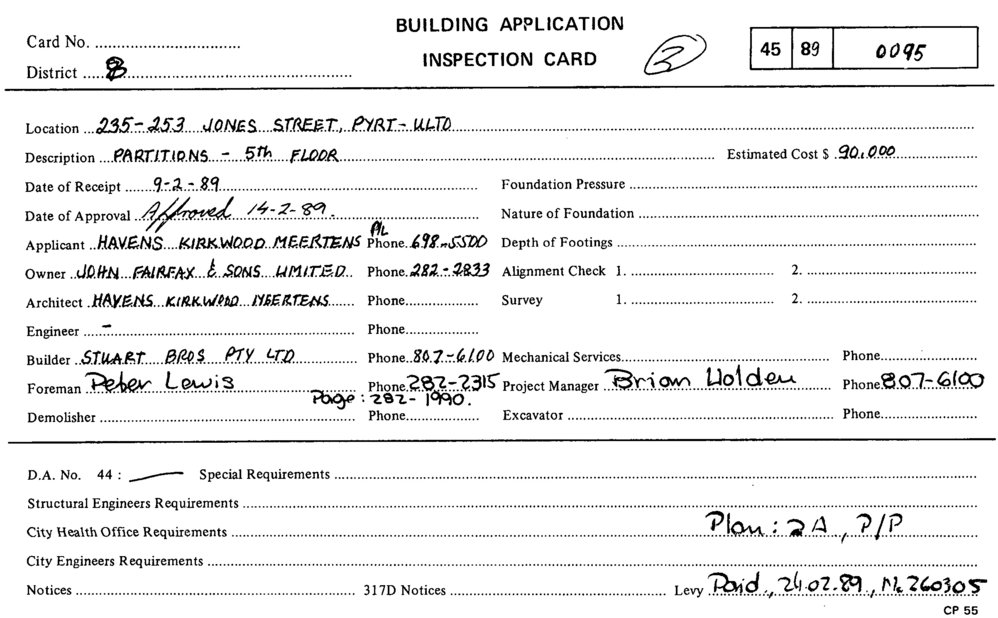 BUILDING APPLICATION
INSPECTION CARD
Card No.
2
45 89 0095
District 8
Location 235-253 JONES STREET, PYRT-ULTO
Description PARTITIONS - 5th FLOOR Estimated Cost $ 90,000
Date of Receipt 9-2-89 Foundation Pressure
Date of Approval Approved 14-2-89. Nature of Foundation
Applicant HAVENS KIRKWOOD MEERTENS P/L Phone 698-5500 Depth of Footings
Owner JOHN FAIRFAX & SONS LIMITED Phone 282-2833 Alignment Check 1. 2.
Architect HAVENS KIRKWOOD MEERTENS Phone Survey 1. 2.
Engineer - Phone
Builder STUART BROS PTY LTD Phone 807-6100 Mechanical Services Phone
Foreman Peter Lewis Phone 282-2315 Project Manager Brian Holden Phone 807-6100
Page: 282-1990.
Demolisher Phone Excavator Phone
D.A. No. 44 : — Special Requirements
Structural Engineers Requirements
City Health Office Requirements Plan: 2A, P/P
City Engineers Requirements
Notices 317D Notices Levy Paid, 24.02.89, 260305
CP 55